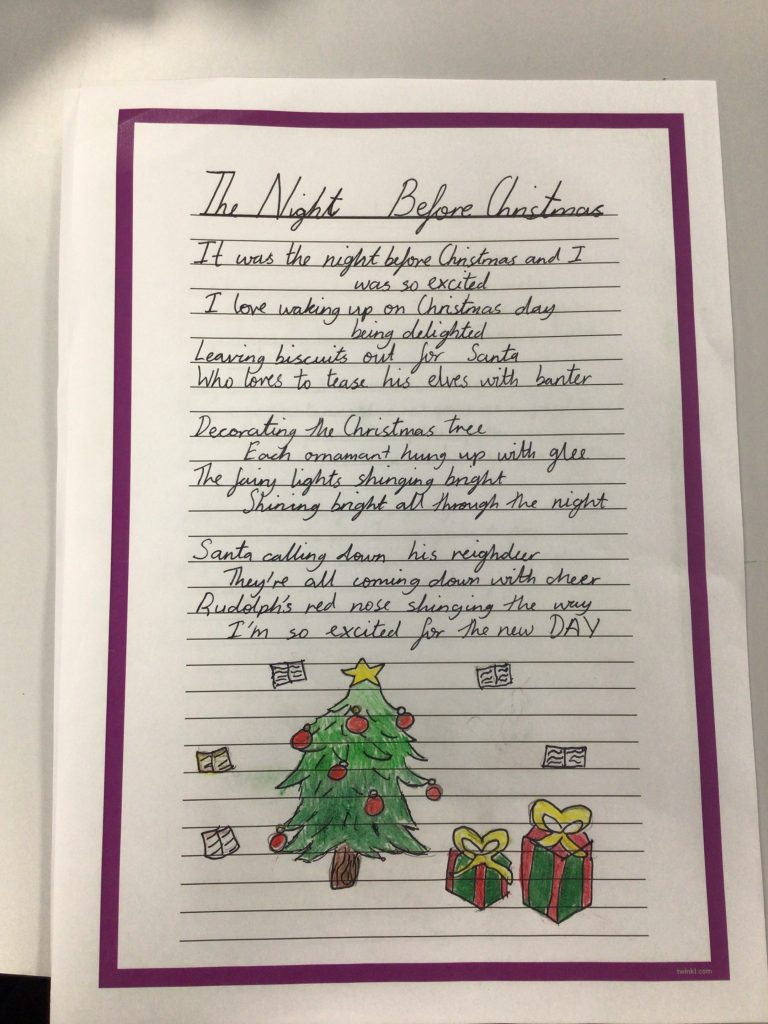 The Night Before Christmas
It was the night before Christmas and I
was so excited
I love waking up on Christmas day
being delighted
Leaving biscuits out for Santa
Who loves to tease his elves with banter
Decorating the Christmas tree
Each ornamant hung up with glee
The fairy lights shinging bright
Shining bright all through the night
Santa calling down his reighdeer
They're all coming down with cheer
Rudolph's red nose shinging the way
I'm so excited for the new DAY
twinkl.com